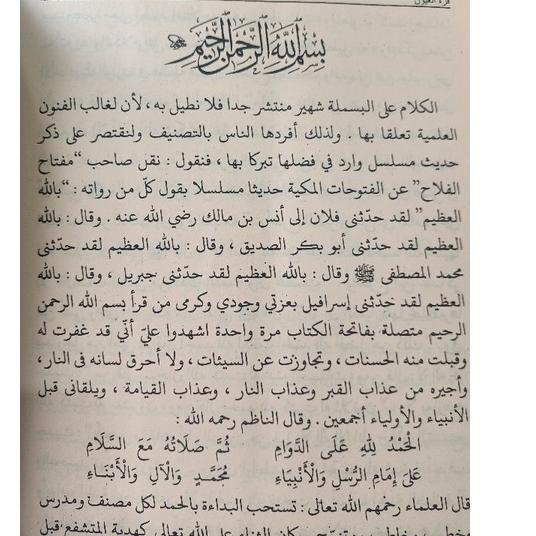 قرة العيون
بسم الله الرحمن الرحيم
الكلام على البسملة شهير منتشر جدا فلا نطيل به ، لأن لغالب الفنون
العلمية تعلقا بها . ولذلك أفردها الناس بالتصنيف ولنقتصر على ذكر
حديث مسلسل وارد في فضلها تبركا بها ، فنقول : نقل صاحب “مفتاح
الفلاح” عن الفتوحات المكية حديثا مسلسلا بقول كلّ من رواته : “بالله
العظيم” لقد حدّثنى فلان إلى أنس بن مالك رضي الله عنه . وقال : بالله
العظيم لقد حدّثنى أبو بكر الصديق ، وقال : بالله العظيم لقد حدّثنى
محمد المصطفى ﷺ وقال : بالله العظيم لقد حدّثنى جبريل ، وقال : بالله
العظيم لقد حدّثنى إسرافيل بعزتي وجودي وكرمى من قرأ بسم الله الرحمن
الرحيم متصلة بفاتحة الكتاب مرة واحدة اشهدوا عليّ أنّي قد غفرت له
وقبلت منه الحسنات ، وتجاوزت عن السيئات ، ولا أحرق لسانه فى النار ،
وأجيره من عذاب القبر وعذاب النار ، وعذاب القيامة ، ويلقانى قبل
الأنبياء والأولياء أجمعين . وقال الناظم رحمه الله :
الْحَمْدُ لِلهِ عَلَى الدَّوَامِ ثُمَّ صَلَاتُهُ مَعَ السَّلَامِ
عَلَى إِمَامِ الرُّسْلِ وَالْأَنْبِيَاءِ مُحَمَّدٍ وَالْآلِ وَالْأَبْنَاءِ
قال العلماء رحمهم الله تعالى : تستحب البداءة بالحمد لكل مصنف ومدرس
الله تعالى كهدية المتشفع قبل